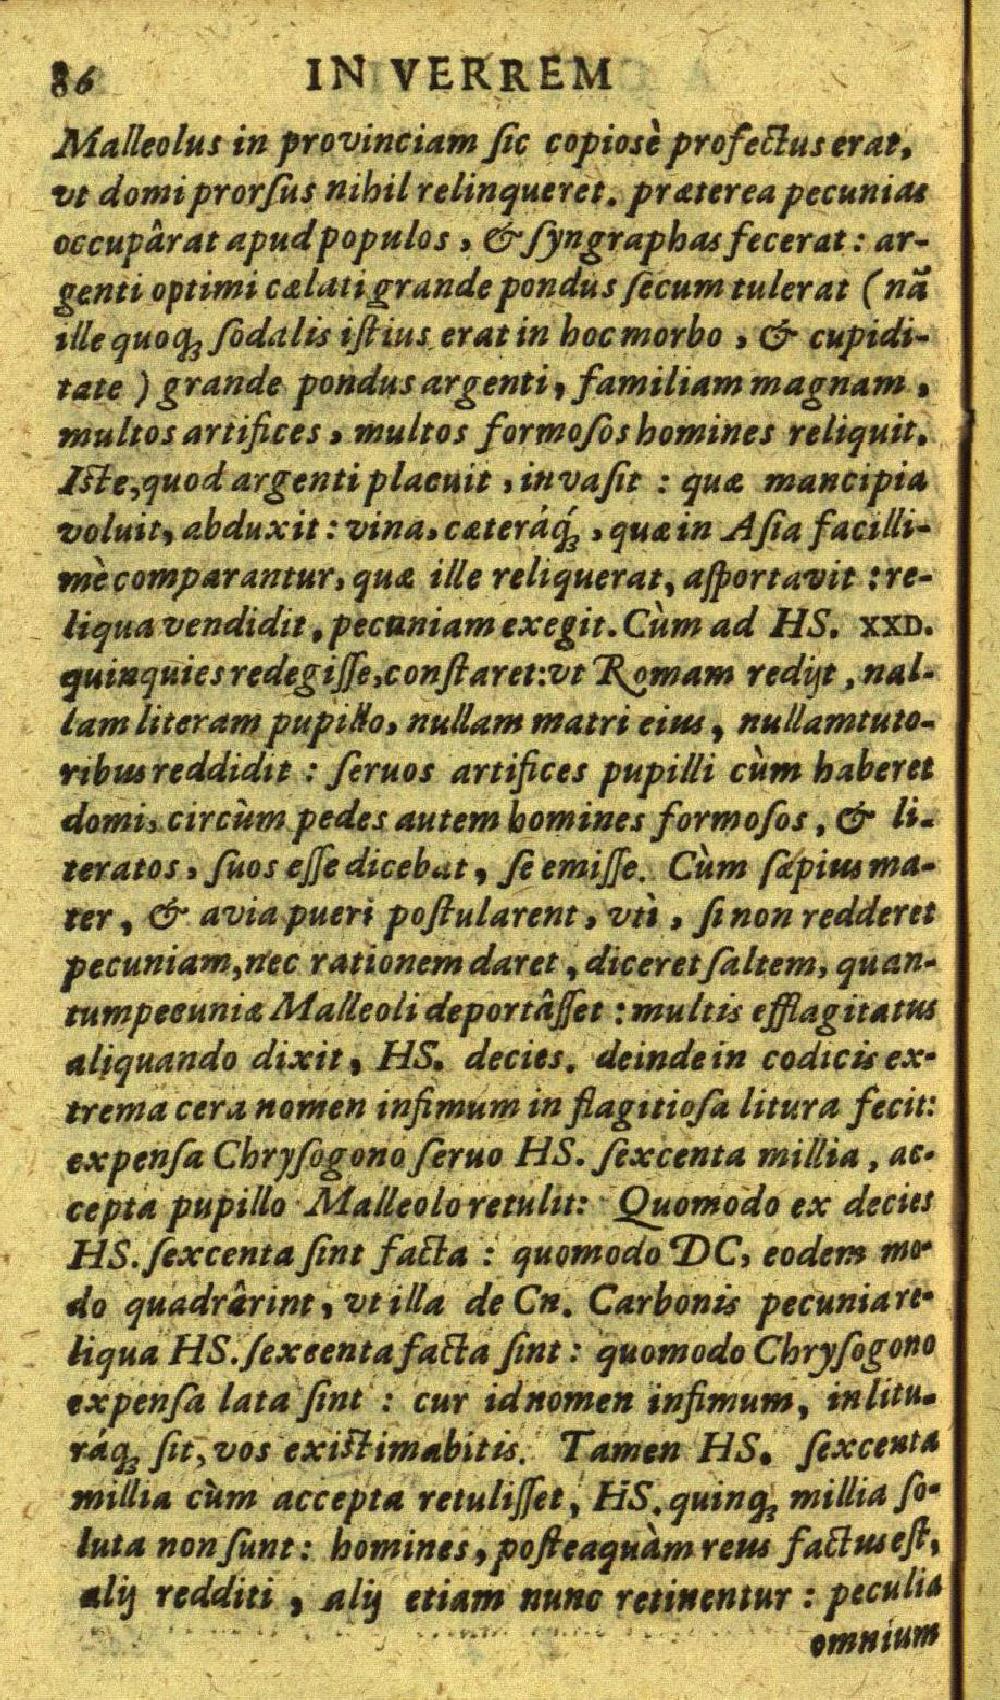 86 IN VERREM
Malleolus in provinciam ſic copiosè profectus erat,
vt domi prorſus nihil relinqueret. præterea pecunias
occupârat apud populos, & ſyngraphas fecerat: ar-
genti optimi cælati grande pondus ſecum tulerat (nã
ille quoq; ſodalis iſtius erat in hoc morbo, & cupidi-
tate) grande pondus argenti, familiam magnam,
multos artifices, multos formoſos homines reliquit.
Iſte, quod argenti placuit, invaſit: quæ mancipia
voluit, abduxit: vina, cæteráq́;, quæ in Aſia facilli-
mè comparantur, quæ ille reliquerat, aſportavit: re-
liqua vendidit, pecuniam exegit. Cùm ad HS. XXD.
quinquies redegiſſe, conſtaret: vt Romam redijt, nal-
lam literam pupillo, nullam matri eius, nullam tuto-
ribus reddidit: ſeruos artifices pupilli cùm haberet
domi, circùm pedes autem homines formoſos, & li-
teratos, ſuos eſſe dicebat, ſe emiſſe. Cùm ſæpius ma-
ter, & avia pueri poſtularent, vtì, ſi non redderet
pecuniam, nec rationem daret, diceret ſaltem, quan-
tum pecuniæ Malleoli deportâſſet: multis efflagitatus
aliquando dixit, HS. decies. deinde in codicis ex-
trema cera nomen infimum in flagitioſa litura fecit:
expenſa Chryſogono ſeruo HS. ſexcenta millia, ac-
cepta pupillo Malleolo retulit: Quomodo ex decies
HS. ſexcenta ſint facta: quomodo DC, eodem mo-
do quadrârint, vt illa de Cn. Carbonis pecunia re-
liqua HS. ſexcenta facta ſint: quomodo Chryſogono
expenſa lata ſint: cur id nomen infimum, in litu-
ráq; ſit, vos exiſtimabitis. Tamen HS. ſexcenta
millia cùm accepta retuliſſet, HS. quinq; millia ſo-
luta non ſunt: homines, poſteaquàm reus factus eſt,
alij redditi, alij etiam nunc retinentur: peculia
omnium